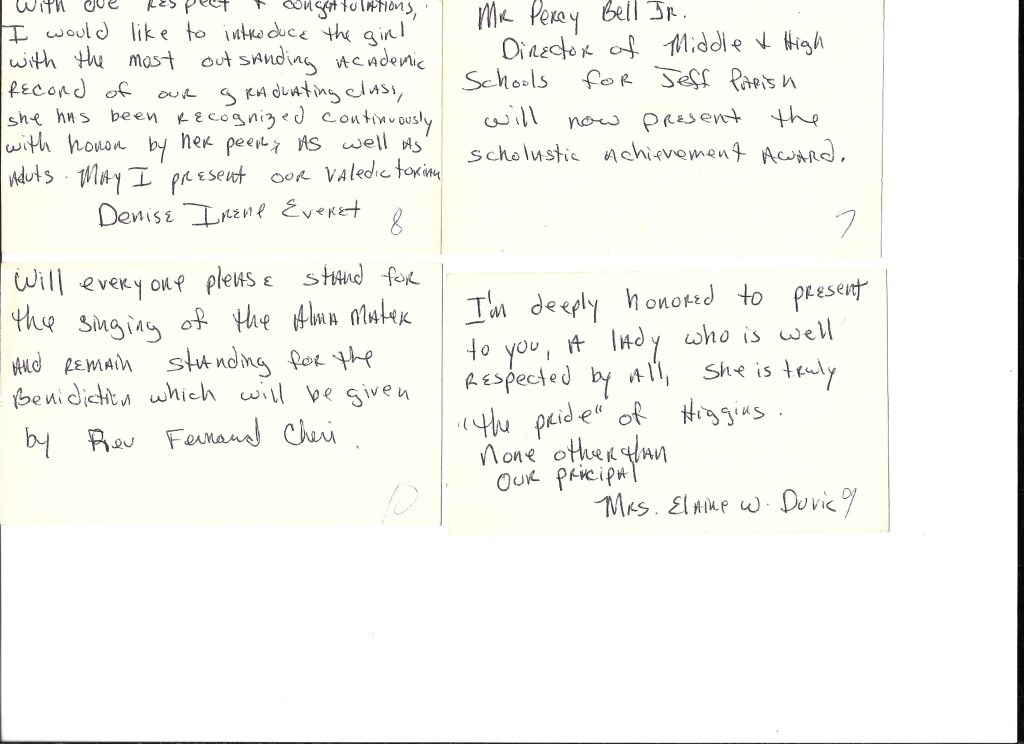 With due respect & congratulations,
I would like to introduce the girl
with the most outstanding academic
record of our graduating class,
she has been recognized continuously
with honor by her peers, as well as
aduts. May I present our Valedictorian
Denise Irene Everet 8
Mr Percy Bell Jr.
Director of Middle & High
Schools for Jeff Parish
will now present the
scholastic achievement award.
7
Will everyone please stand for
the singing of the Alma Mater
and remain standing for the
Benidiction which will be given
by Rev Fernand Cheri.
10
I'm deeply honored to present
to you, a lady who is well
respected by all, she is truly
"the pride" of Higgins.
None other than
our pricipal
Mrs. Elaine W. Duvic 9